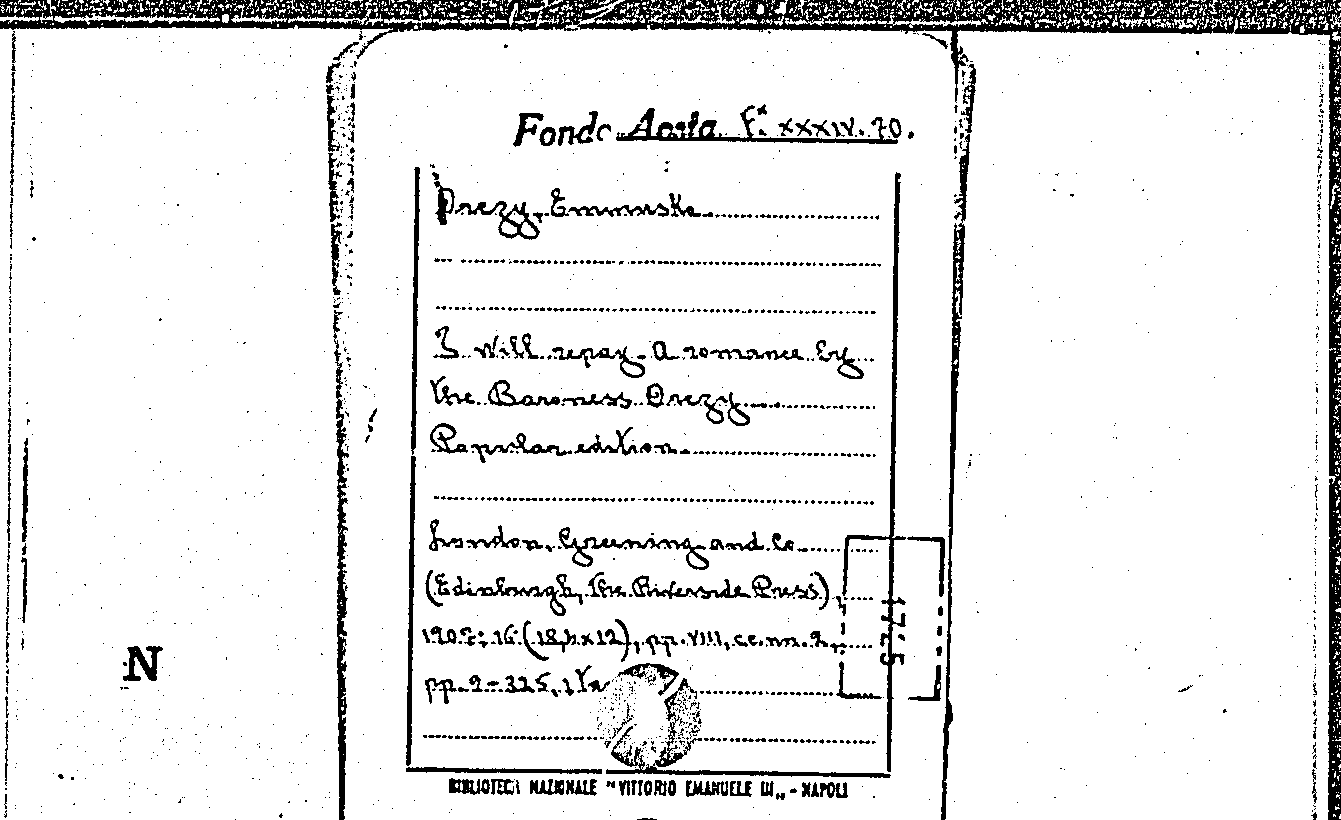 Fondo Aosta F.x XXXIV. 70.
Orczy, Emmuska
I will repay. A romance by
the Baroness Orczy
Popular edition.
London, Greening and Co.
(Edinburgh, The Riverside Press),
16° (18,5x12), pp. VIII, cc. nn. 2,
pp. 9-325, 1
1725
N
BIBLIOTECA NAZIONALE "VITTORIO EMANUELE III„ - NAPOLI